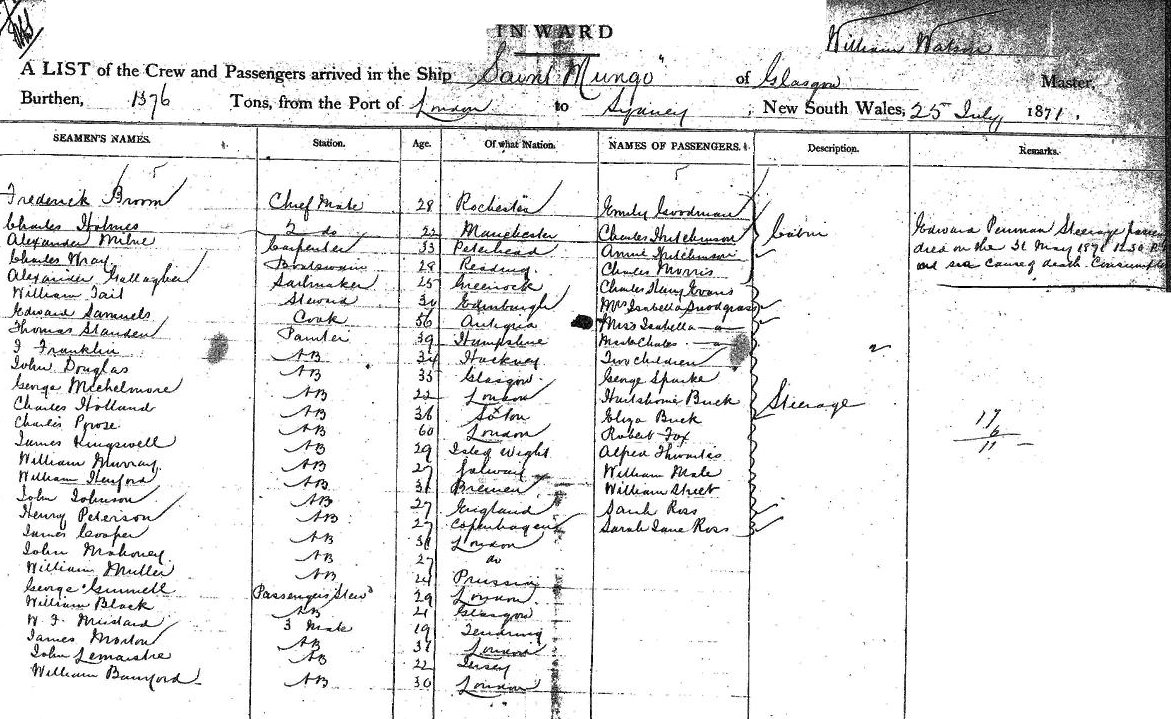 INWARD
William Watson
A LIST of the Crew and Passengers arrived in the Ship "Saint Mungo" of Glasgow Master,
Burthen, 1376 Tons, from the Port of London to Sydney, New South Wales, 25 July 1871,
SEAMEN'S NAMES. Station. Age. Of what Nation. NAMES OF PASSENGERS. Description. Remarks.
Frederick Broom Chief Mate 28 Rochester Emily Goodman
Charles Holmes 2 do 22 Manchester Charles Hutchinson Cabin
Alexander Milne Carpenter 33 Peterhead Annie Hutchinson
Charles Wray Boatswain 28 Reading Charles Morris
Alexander Gallagher Sailmaker 25 Greenock Charles Henry Evans
William Tait Steward 30 Edinburgh Mrs Isabella Snodgrass
Edward Samuels Cook 56 Antigua Miss Isabella
Thomas Standen Painter 39 Hampshire
J Franklin AB 34 Hackney Two Children
John Douglas AB 33 Glasgow George Sparke
George Michelmore AB 22 London Buck
Charles Holland AB 36 Soton Eliza Buck Steerage
Charles AB 60 London Robert Fox
James Kingswell AB 29 Isle of Wight Alfred Thwaites
William Murray AB 27 Galway William Male
William Henford AB 31 Bremen William Street
John Johnson AB 27 England Sarah Ross
Henry Peterson AB 27 Copenhagen Sarah Jane Ross
James Cooper AB 31 London
John Mahoney AB 27 do
William Miller AB 21 Prussia
George Gunnell Passengers Stewd 29 London
William Black AB 21 Glasgow
W. J. Mustard 3 Mate 19 Tendring
James Morton AB 31 London
John Lemaistre AB 22 Jersey
William Bamford AB 30 London
Edward Penman Steerage
died on the 31 May 1871 12.30
at sea cause of death Consumption
17
6
11